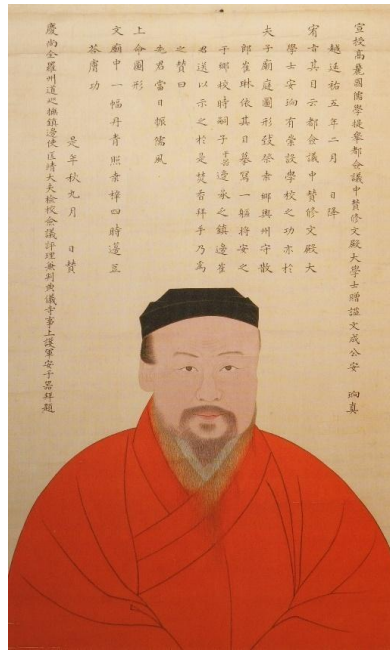 宣授高麗國儒學提擧都僉議中贊修文殿大學士贈諡文成公安 珦真
越延祐五年二月 日降
宥旨其目云都僉議中贊修文殿大
學士安珦有崇設學校之功亦於
夫子廟庭圖形致祭本鄕興州守散
郎崔琳依其目摹寫一幅將安之
于鄕校時嗣子于器邊承之鎮邊崔
君送以示之於是焚香拜手乃爲
之贊曰
先君當日振儒風
上命圖形
文廟中一幅丹青照桑梓四時籩豆
荅膚功
是年秋九月 日贊
慶尚全羅州道巡撫鎮邊使匡靖大夫檢校僉議評理兼判典儀寺事上護軍安于器拜題